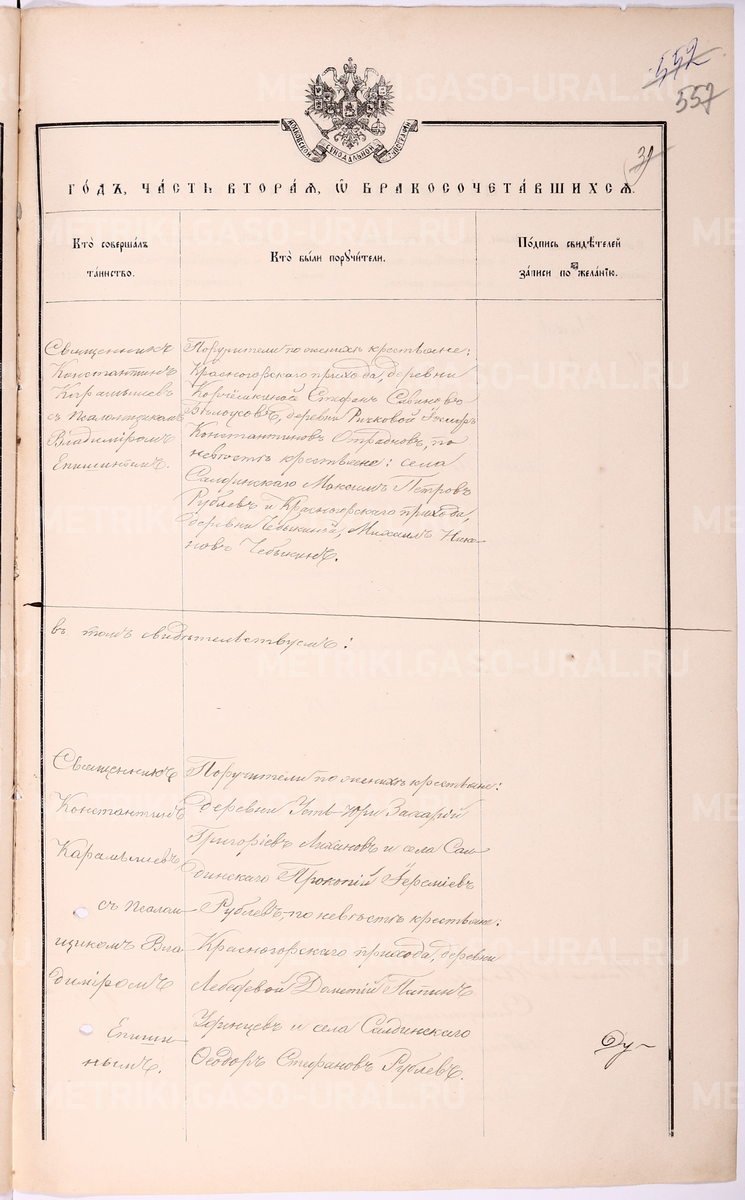 552
557
МОСКОВСКОЙ СѴНОДАЛЬНОЙ ТИПОГРАФІИ
3
ГОДЪ, ЧАСТЬ ВТОРАЯ, Ѿ БРАКОСОЧЕТАВШИХСЯ.
Кто совершалъ
таинство.
Кто были поручители.
Подпись свидѣтелей
записи по желанію.
Священникъ
Константинъ
Карамышевъ
съ псаломщикомъ
Владиміромъ
Епишинымъ.
Поручители по женихѣ крестьяне:
Красногорскаго прихода, деревни
Стефанъ Савиновъ
Бѣлоусовъ, деревни Ричковой
Константиновъ Отрадновъ, по
невѣстѣ крестьяне: села
Салдинскаго Максимъ Петровъ
Рублевъ и Красногорскаго прихода,
деревни Чебыкиной, Михаилъ Нико-
новъ Чебыкинъ.
въ томъ свидѣтельствуемъ:
Священникъ
Константинъ
Карамышевъ
съ псалом-
щикомъ Вла
диміромъ
Епиши-
нымъ.
Поручители по женихѣ крестьяне:
деревни Усть-Юри Захарій
Григоріевъ Лихановъ и села Сал-
динскаго Прокопій Іереміевъ
Рублевъ, по невѣстѣ крестьяне:
Красногорскаго прихода, деревни
Лебедевой Дометій
и села Салдинскаго
Ѳеодоръ Стефановъ Рублевъ.
Ду-
METRIKI.GASO-URAL.RU